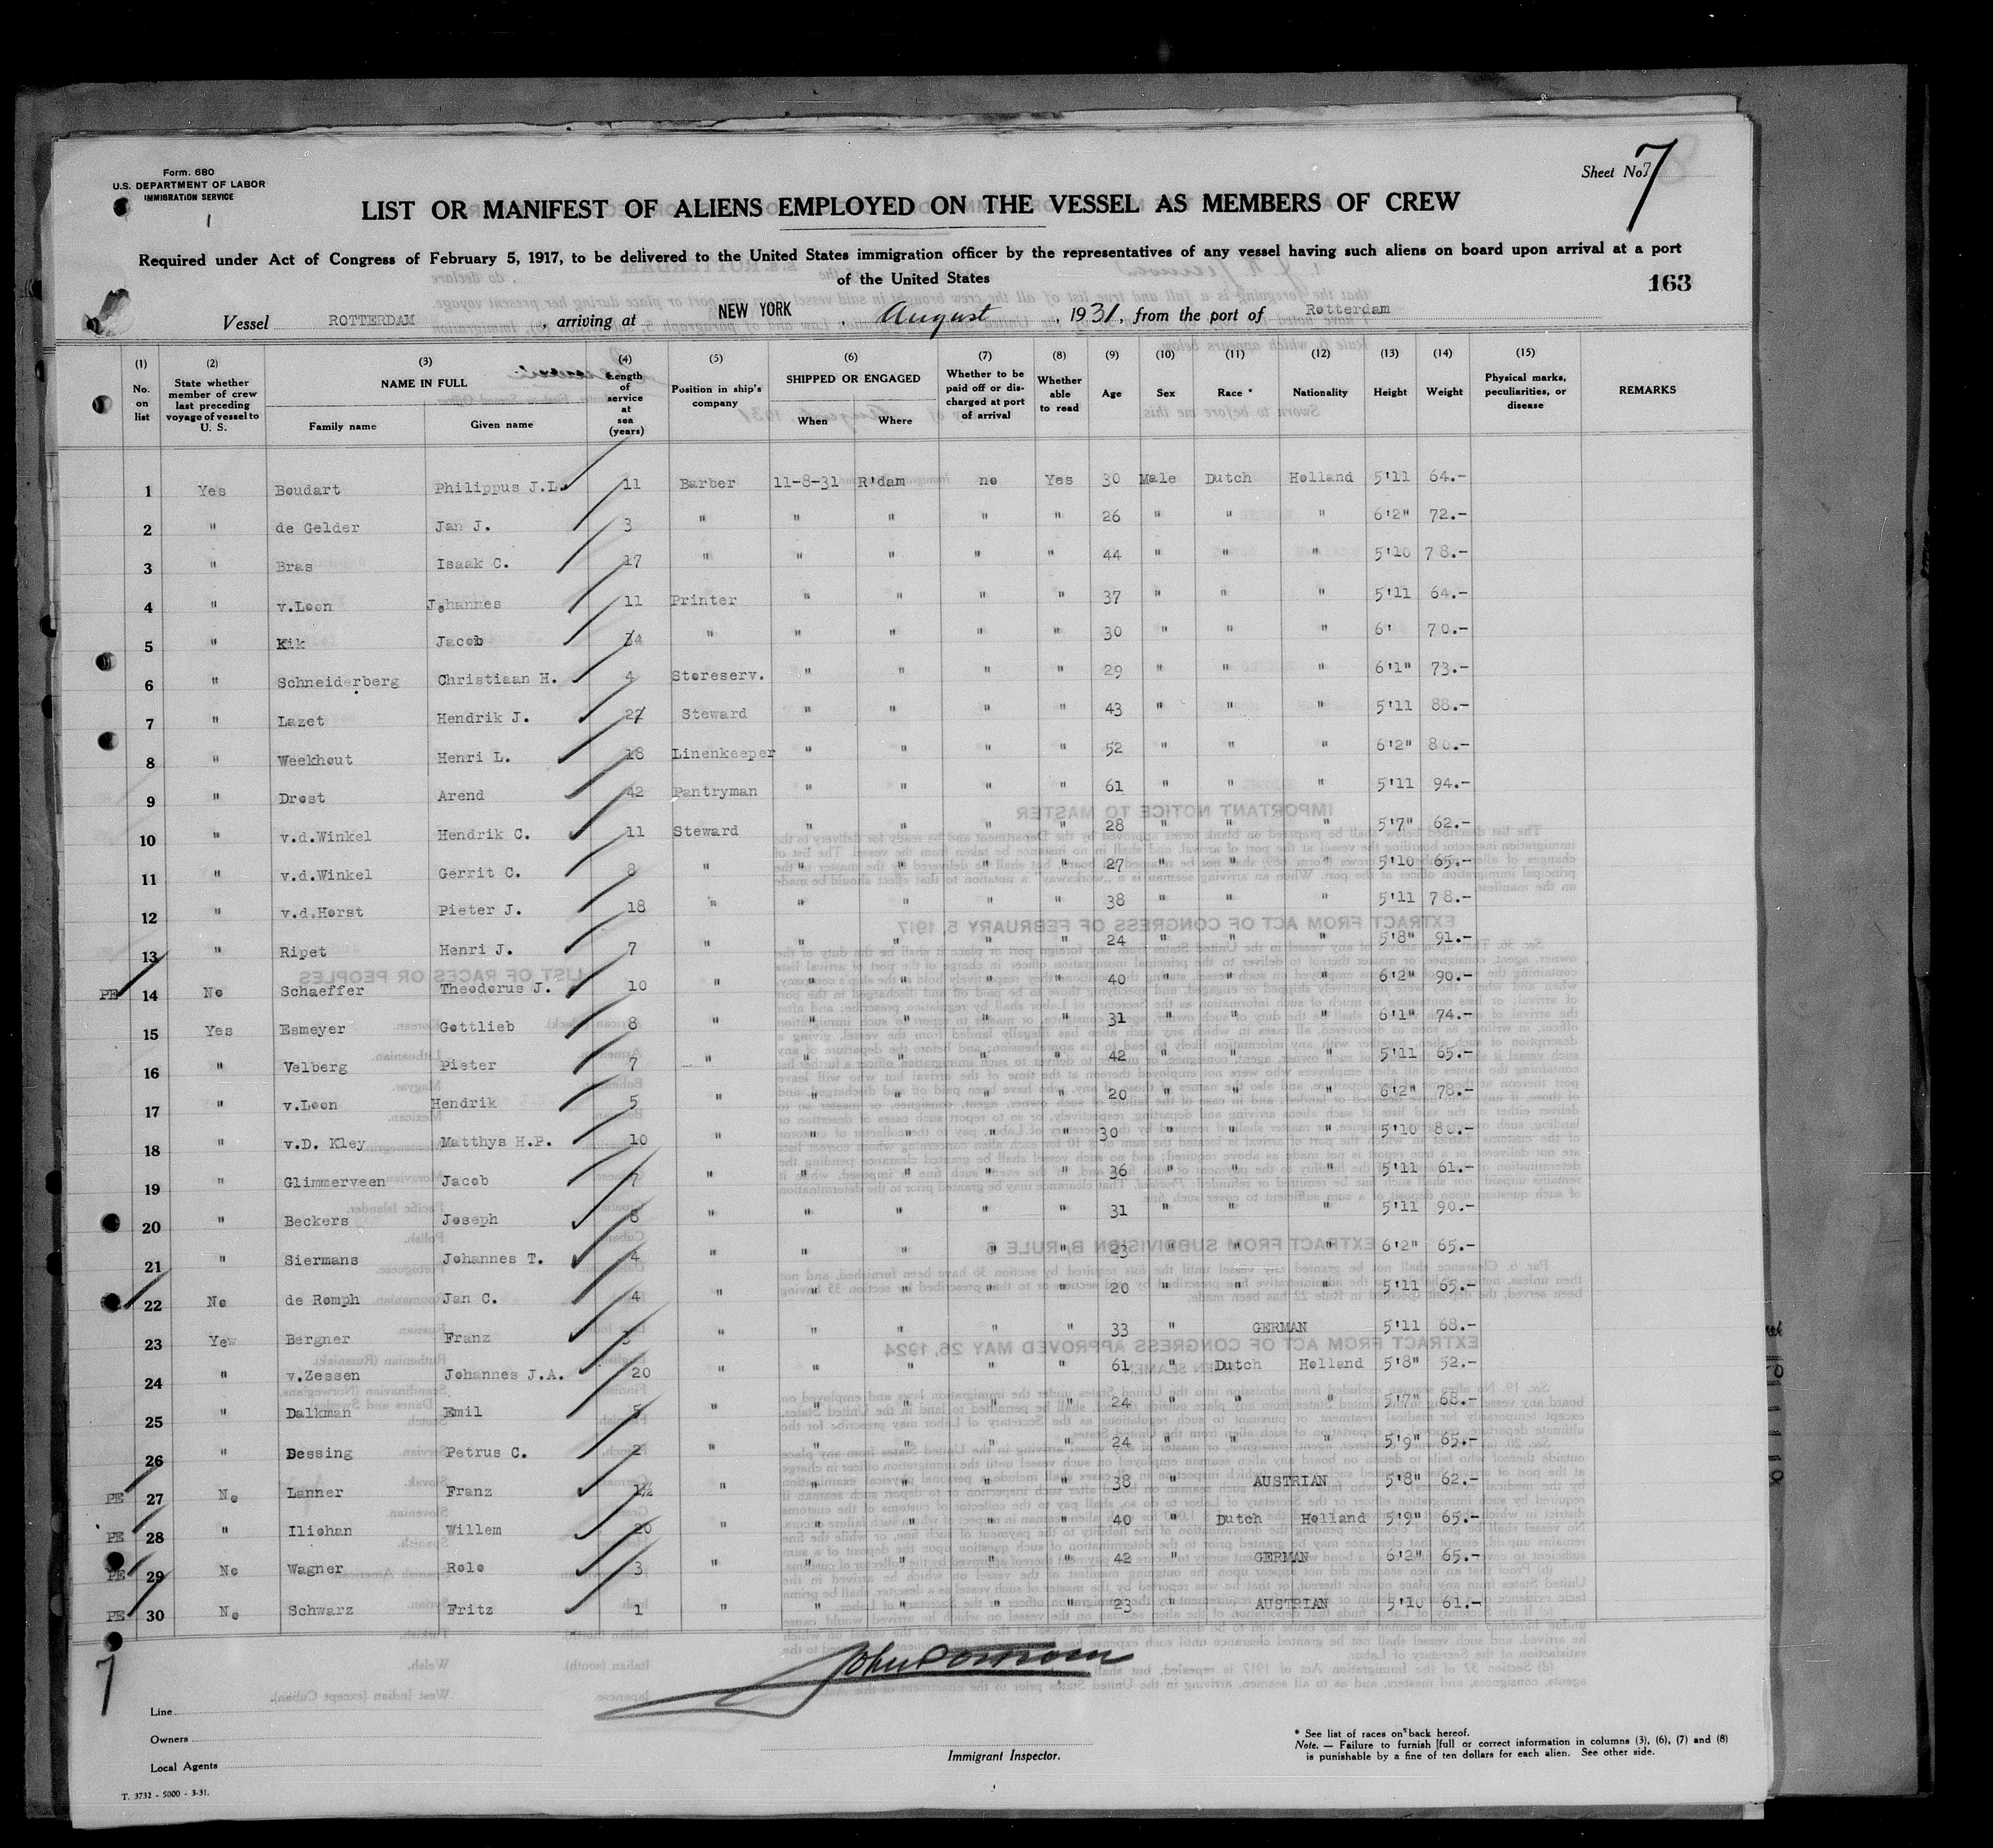 Form. 680
U.S. DEPARTMENT OF LABOR
IMMIGRATION SERVICE
1
Sheet No. 7
7
LIST OR MANIFEST OF ALIENS EMPLOYED ON THE VESSEL AS MEMBERS OF CREW
Required under Act of Congress of February 5, 1917, to be delivered to the United States immigration officer by the representatives of any vessel having such aliens on board upon arrival at a port
of the United States
163
Vessel ROTTERDAM, arriving at NEW YORK, August, 1931, from the port of Rotterdam
(1) No. on list (2) State whether member of crew last preceding voyage of vessel to U. S. (3) NAME IN FULL Family name Given name (4) Length of service at sea (years) (5) Position in ship's company (6) SHIPPED OR ENGAGED When Where (7) Whether to be paid off or discharged at port of arrival (8) Whether able to read (9) Age (10) Sex (11) Race * (12) Nationality (13) Height (14) Weight (15) Physical marks, peculiarities, or disease REMARKS
1 Yes Boudart Philippus J.L. 11 Barber 11-8-31 R'dam no Yes 30 Male Dutch Holland 5'11 64.-
2 " de Gelder Jan J. 3 " " " " " 26 " " " 6'2" 72.-
3 " Bras Isaak C. 17 " " " " " 44 " " " 5'10 78.-
4 " v.Loon Johannes 11 Printer " " " " 37 " " " 5'11 64.-
5 " Kik Jacob 14 " " " " " 30 " " " 6' 70.-
6 " Schneiderberg Christiaan H. 4 Storeserv. " " " " 29 " " " 6'1" 73.-
7 " Lazet Hendrik J. 22 Steward " " " " 43 " " " 5'11 88.-
8 " Weekhout Henri L. 18 Linenkeeper " " " " 52 " " " 6'2" 80.-
9 " Drost Arend 42 Pantryman " " " " 61 " " " 5'11 94.-
10 " v.d.Winkel Hendrik C. 11 Steward " " " " 28 " " " 5'7" 62.-
11 " v.d.Winkel Gerrit C. 8 " " " " " 27 " " " 5'10 65.-
12 " v.d.Horst Pieter J. 18 " " " " " 38 " " " 5'11 78.-
13 " Ripet Henri J. 7 " " " " " 24 " " " 5'8" 91.-
PE 14 No Schaeffer Theodorus J. 10 " " " " " 40 " " " 6'2" 90.-
15 Yes Esmeyer Gottlieb 8 " " " " " 31 " " " 6'1" 74.-
16 " Velberg Pieter 7 " " " " " 42 " " " 5'11 65.-
17 " v.Loon Hendrik 5 " " " " " 20 " " " 6'2" 78.-
18 " v.D. Kley Matthys H.P. 10 " " " " " 30 " " " 5'10 80.-
19 " Glimmerveen Jacob 7 " " " " " 36 " " " 5'11 61.-
20 " Beckers Joseph 8 " " " " " 31 " " " 5'11 90.-
21 " Siermans Johannes T. 4 " " " " " 23 " " " 6'2" 65.-
22 No de Romph Jan C. 4 " " " " " 20 " " " 5'11 65.-
23 Yew Bergner Franz 3 " " " " " 33 " GERMAN 5'11 68.-
24 " v.Zessen Johannes J.A. 20 " " " " " 61 " Dutch Holland 5'8" 52.-
25 " Dalkman Emil 5 " " " " " 24 " " " 5'7" 68.-
26 " Dessing Petrus C. 2 " " " " " 24 " " " 5'9" 65.-
PE 27 No Lanner Franz 1½ " " " " " 38 " AUSTRIAN 5'8" 62.-
PE 28 " Iliohan Willem 20 " " " " " 40 " Dutch Holland 5'9" 65.-
PE 29 No Wagner Rolo 3 " " " " " 42 " GERMAN 6'2" 65.-
PE 30 No Schwarz Fritz 1 " " " " " 23 " AUSTRIAN 5'10 61.-
7
Line
Owners
Local Agents
Immigrant Inspector.
* See list of races on back hereof.
Note. — Failure to furnish full or correct information in columns (3), (6), (7) and (8)
is punishable by a fine of ten dollars for each alien. See other side.
T. 3732 - 5000 - 3-31.